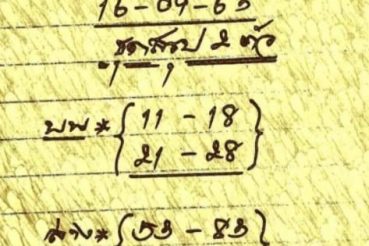 16-09-63
ชุดสรุป 2 ตัว
บน* {11 - 18
21 - 28}
ล่าง* {53 - 83}